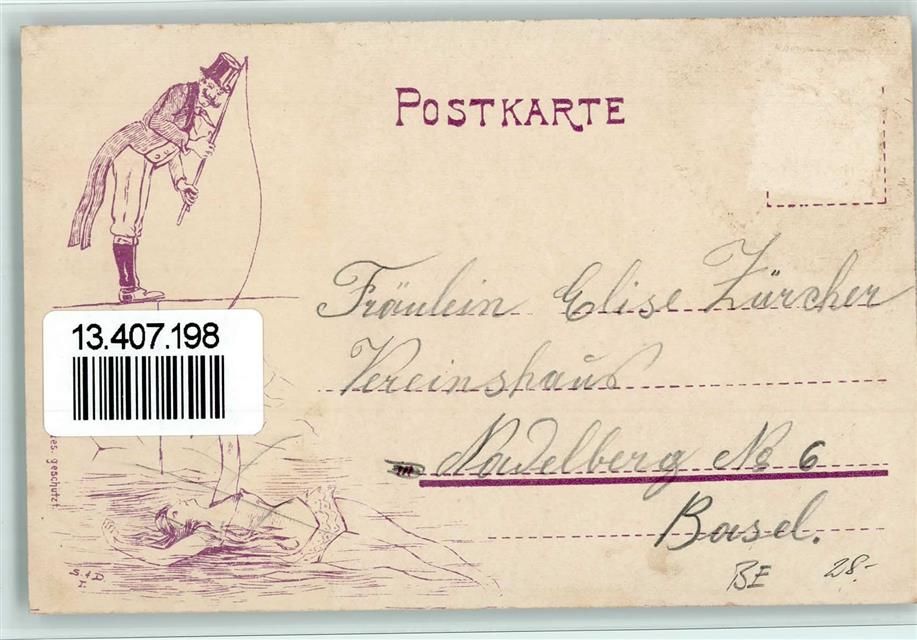 POSTKARTE
13.407.198
Fräulein Elise Zürcher
Vereinshaus
Nadelberg No 6
Basel.
ges. geschützt
S + D
I
BE 28.-